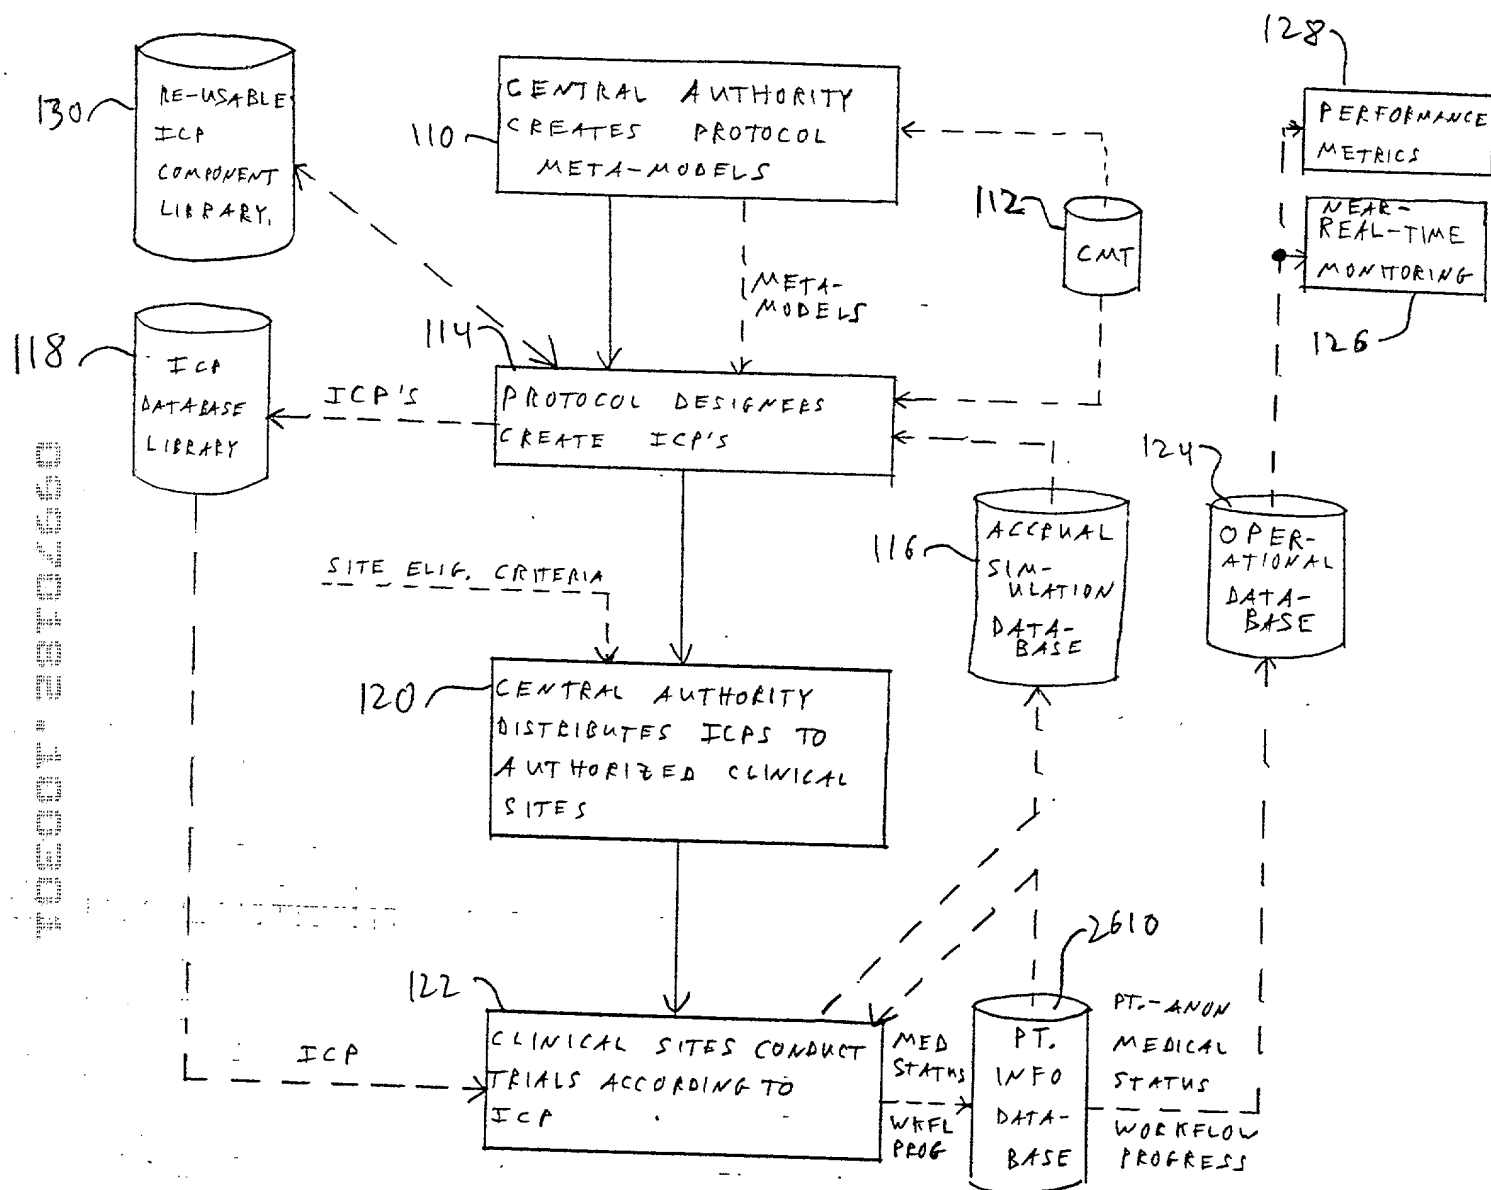 128
130
RE-USABLE
ICP
COMPONENT
LIBRARY.
110
CENTRAL AUTHORITY
CREATES PROTOCOL
META-MODELS
PERFORMANCE
METRICS
112
CMT
NEAR-
REAL-TIME
MONITORING
126
META-
MODELS
118
ICP
DATABASE
LIBRARY
ICP'S
114
PROTOCOL DESIGNERS
CREATE ICP'S
124
OPER-
ATIONAL
DATA-
BASE
116
ACCRUAL
SIM-
ULATION
DATA-
BASE
SITE ELIG. CRITERIA
120
CENTRAL AUTHORITY
DISTRIBUTES ICPS TO
AUTHORIZED CLINICAL
SITES
09970182.100301
122
CLINICAL SITES CONDUCT
TRIALS ACCORDING TO
ICP
ICP
MED
STATUS
WKFL
PROG
2610
PT.
INFO
DATA-
BASE
PT.-ANON
MEDICAL
STATUS
WORKFLOW
PROGRESS